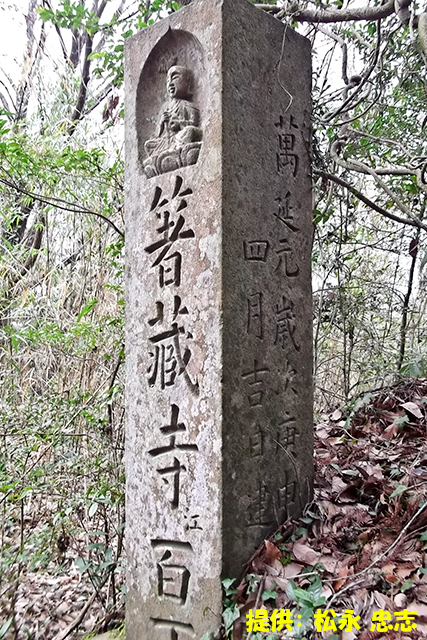 箸蔵寺
江
一百一丁
萬延元歳次庚申
四月吉日建
提供：松永 忠志